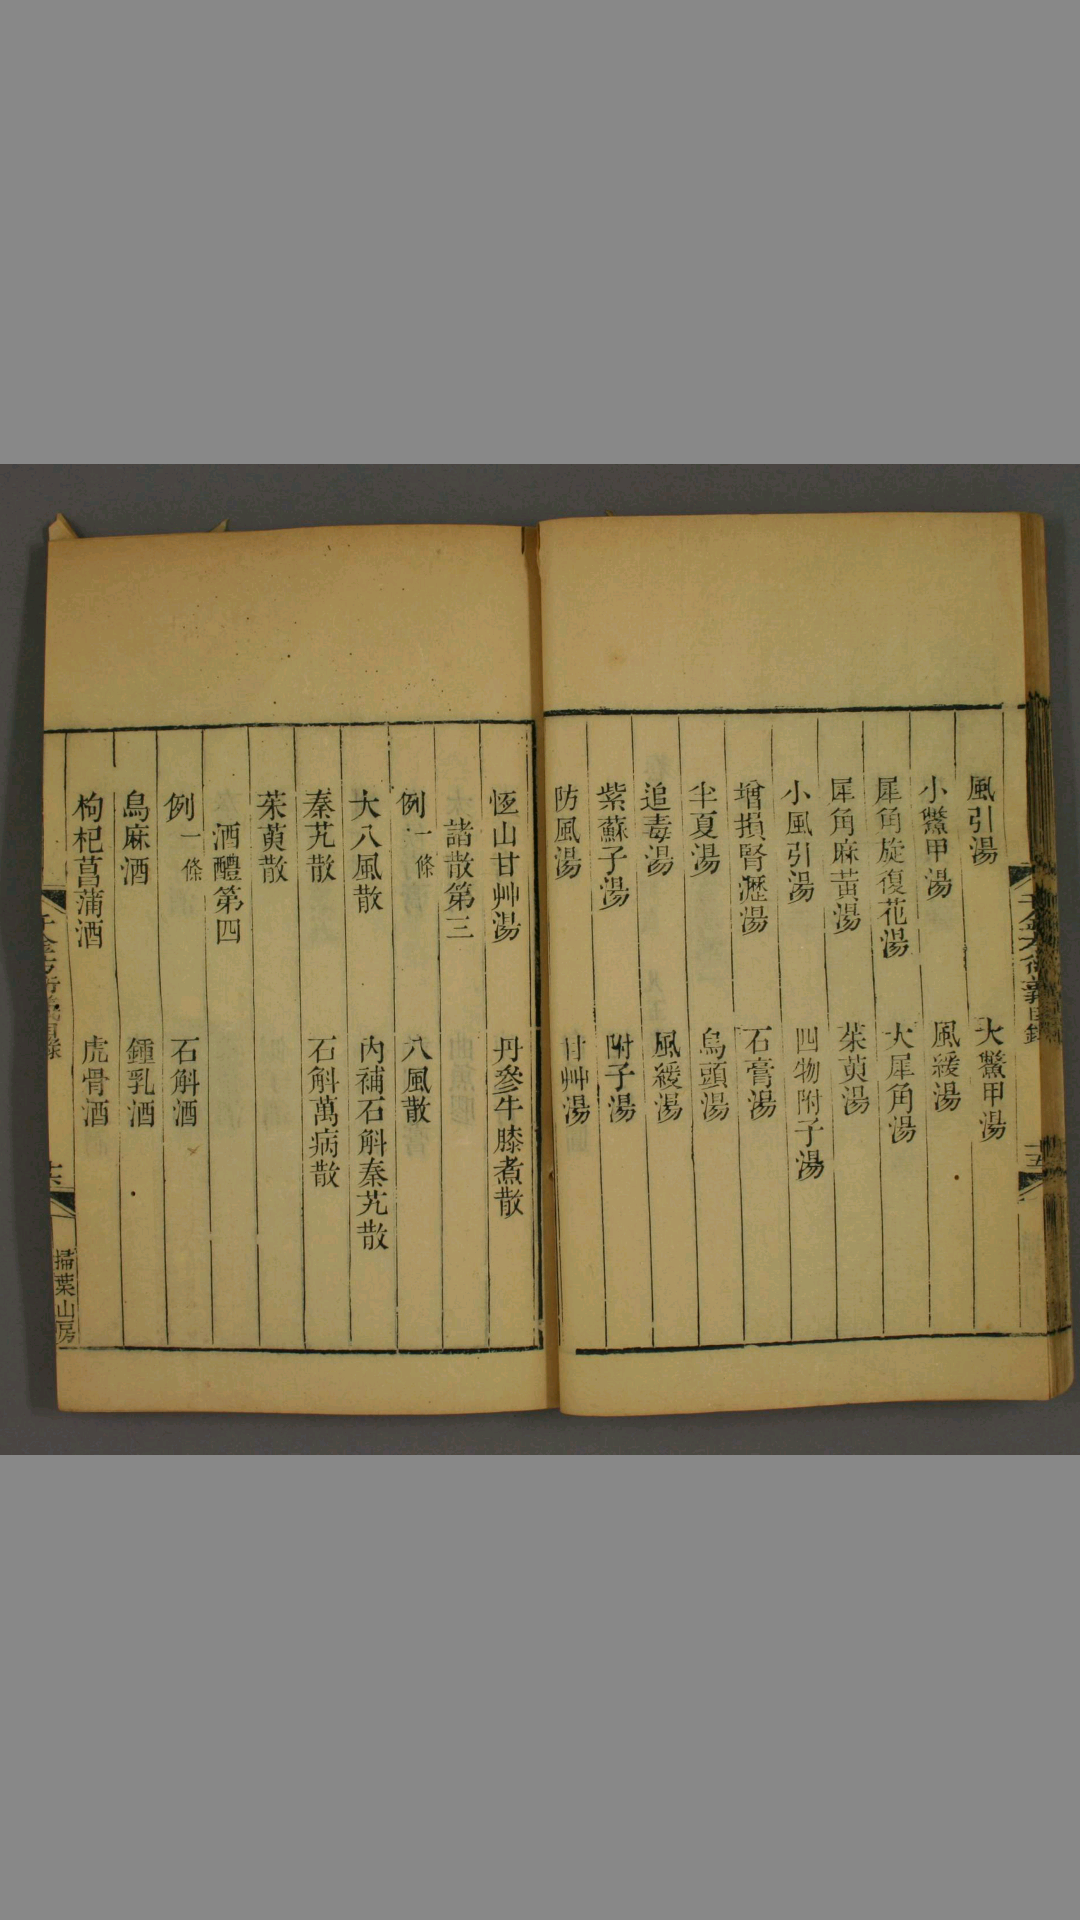 風引湯　大鱉甲湯
小鱉甲湯　風緩湯
犀角旋復花湯　大犀角湯
犀角麻黃湯　茱萸湯
小風引湯　四物附子湯
增損腎瀝湯　石膏湯
半夏湯　烏頭湯
追毒湯　風緩湯
紫蘇子湯　附子湯
防風湯　甘艸湯
千金方衍義目錄　十五
恆山甘艸湯　丹參牛膝煮散
諸散第三
例一條　八風散
大八風散　內補石斛秦艽散
秦艽散　石斛萬病散
茱萸散
酒醴第四
例一條　石斛酒
烏麻酒　鍾乳酒
枸杞菖蒲酒　虎骨酒
千金方衍義目錄　十六　掃葉山房